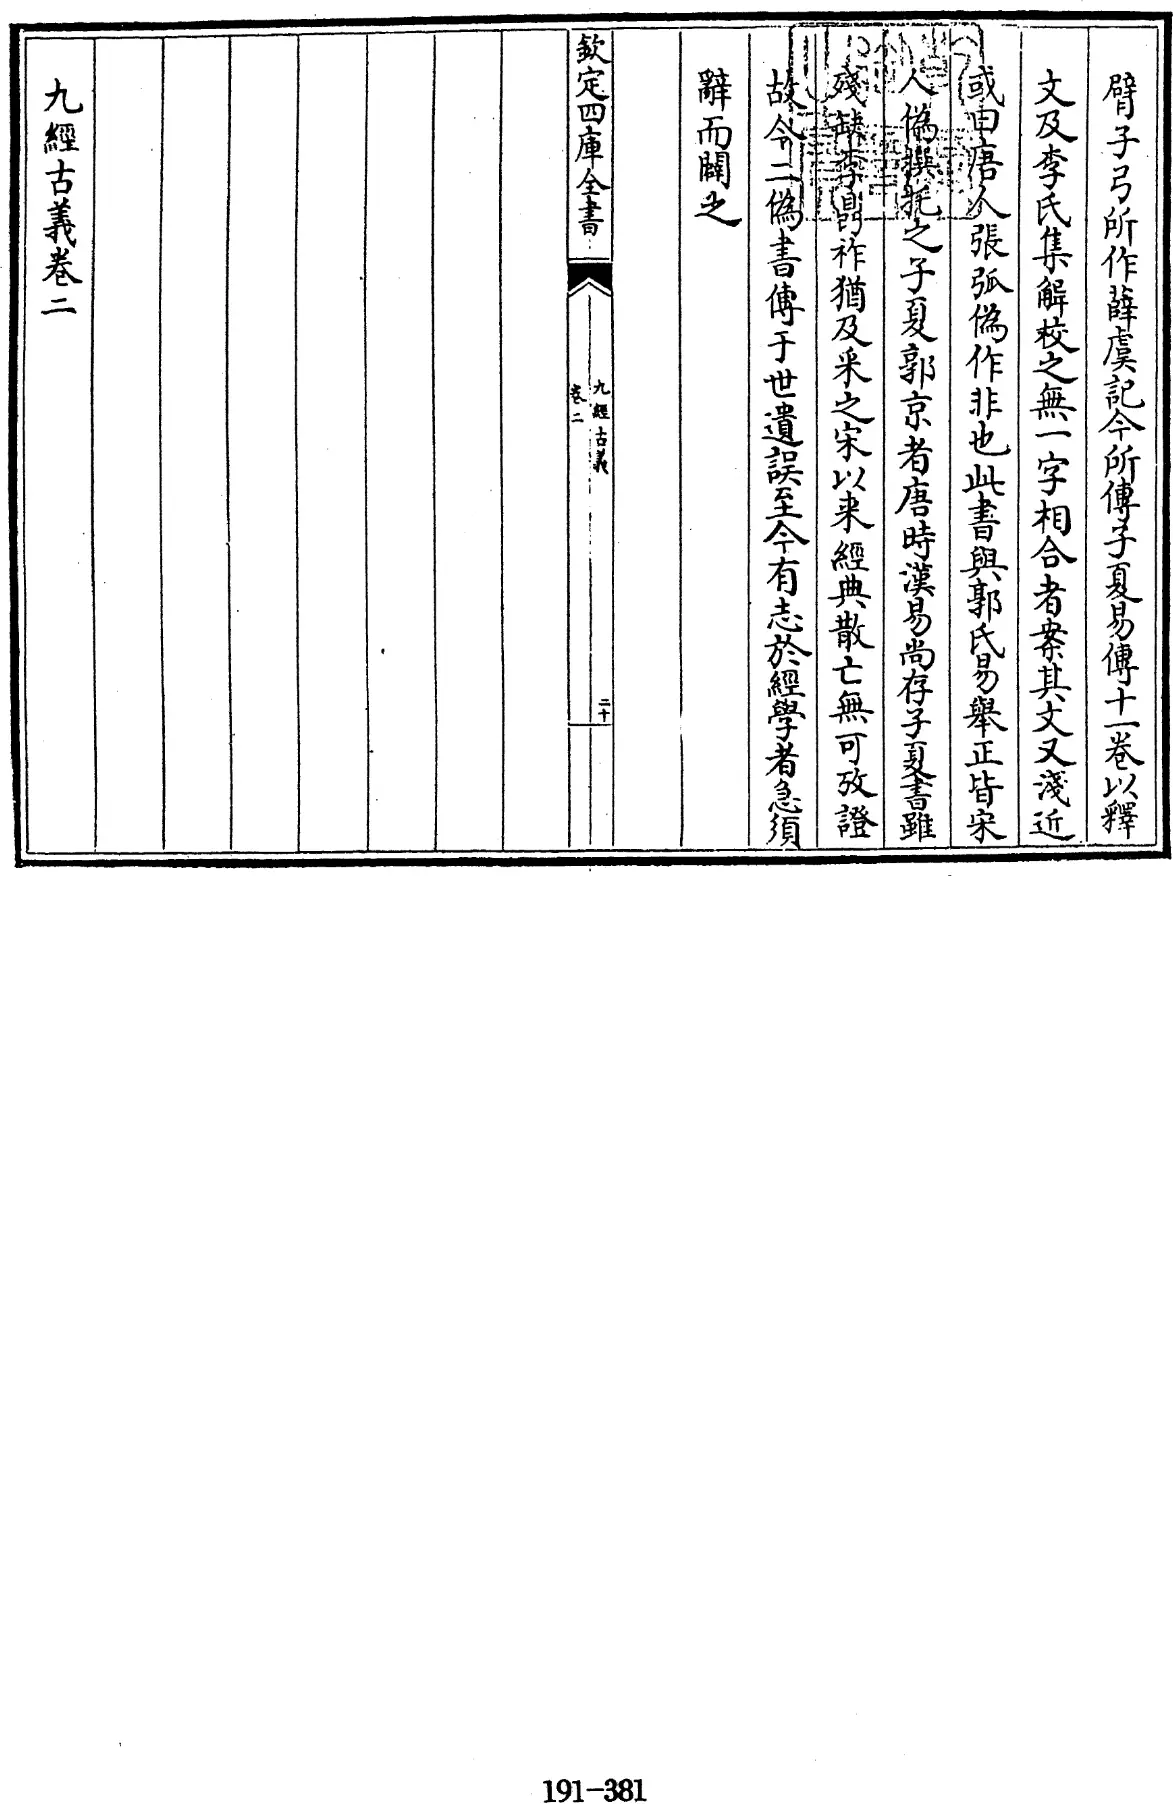 臂子弓所作薛虞記今所傳子夏易傳十一卷以釋
文及李氏集解校之無一字相合者案其文又淺近
或曰唐人張弧偽作非也此書與郭氏易舉正皆宋
人偽撰託之子夏郭京者唐時漢易尚存子夏書雖
殘缺李鼎祚猶及采之宋以来經典散亡無可攷證
故今二偽書傳于世遺誤至今有志於經學者急須
辭而闢之
欽定四庫全書
九經古義
卷二
二十
九經古義卷二
191-381